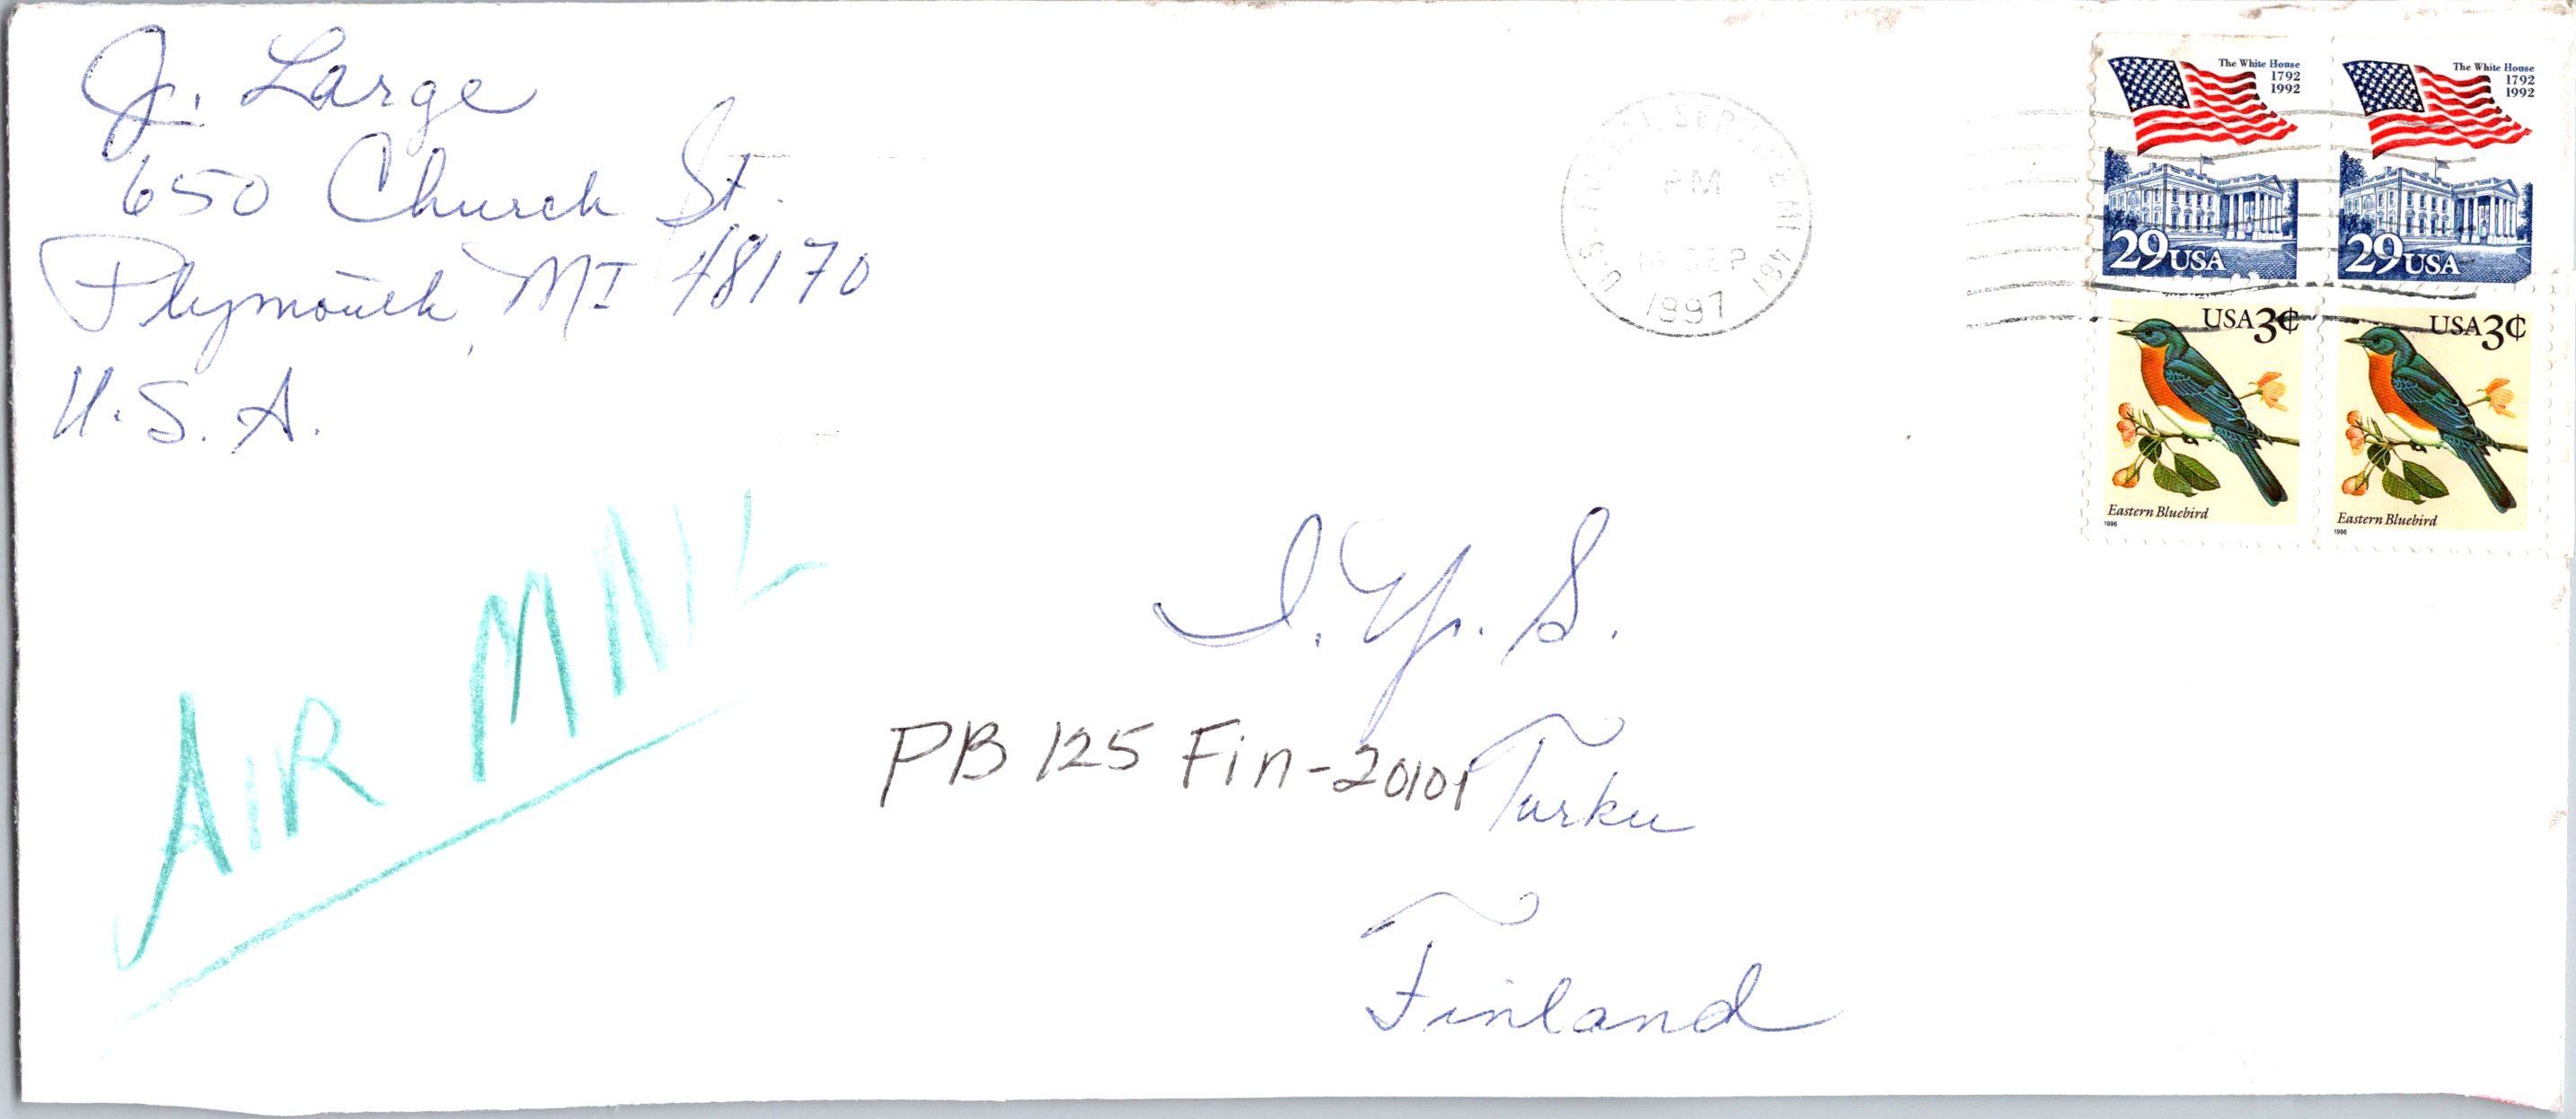 J. Large
650 Church St.
Plymouth, MI 48170
U.S.A.
PM
SEP
1997
The White House
1792
1992
29 USA
The White House
1792
1992
29 USA
USA 3¢
Eastern Bluebird
1996
USA 3¢
Eastern Bluebird
1996
AIR MAIL
I.Y.S.
PB 125 Fin-20101 Turku
Finland